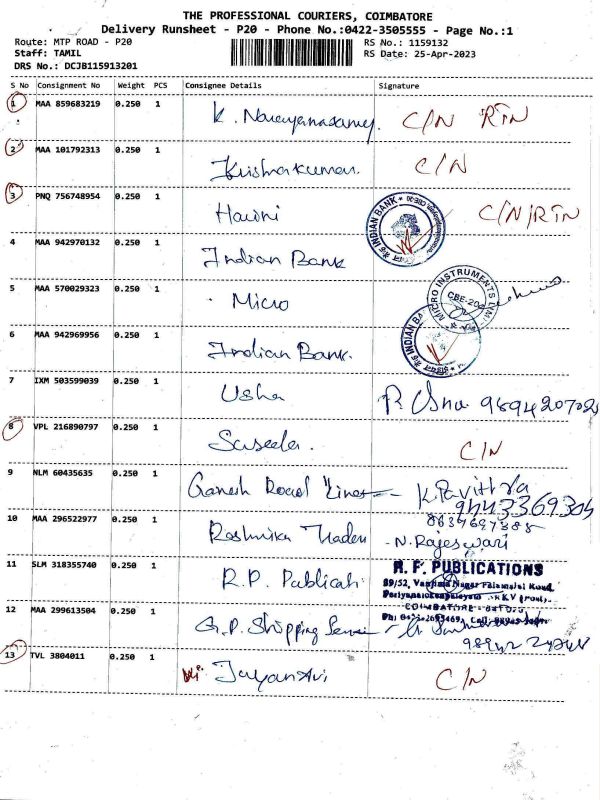 THE PROFESSIONAL COURIERS, COIMBATORE
Delivery Runsheet - P20 - Phone No.:0422-3505555 - Page No.:1
Route: MTP ROAD - P20 RS No.: 1159132
Staff: TAMIL RS Date: 25-Apr-2023
DRS No.: DCJB115913201
S No Consignment No Weight PCS Consignee Details Signature
1 MAA 859683219 0.250 1 K. Narayanasamy. C/N RTN
2 MAA 101792313 0.250 1 Krishnakumar. C/N
3 PNQ 756748954 0.250 1 Harini C/N/RTN
INDIAN BANK
4 MAA 942970132 0.250 1 Indian Bank
5 MAA 570029323 0.250 1 Micro
MICRO INSTRUMENTS
CBE-20
6 MAA 942969956 0.250 1 Indian Bank.
INDIAN BA
7 IXM 503599039 0.250 1 Usha P. Usha
8 VPL 216890797 0.250 1 Saseela. C/N
9 NLM 60435635 0.250 1 Ganesh Road Lines K. Pavithra
9643369304
8637697388
10 MAA 296522977 0.250 1 Rashmika Traders - N. Rajeswari
11 SLM 318355740 0.250 1 R.P. Publicati
R. F. PUBLICATIONS
12 MAA 299613504 0.250 1 G.P. Shipping
13 TVL 3804011 0.250 1 Jayanthi C/N